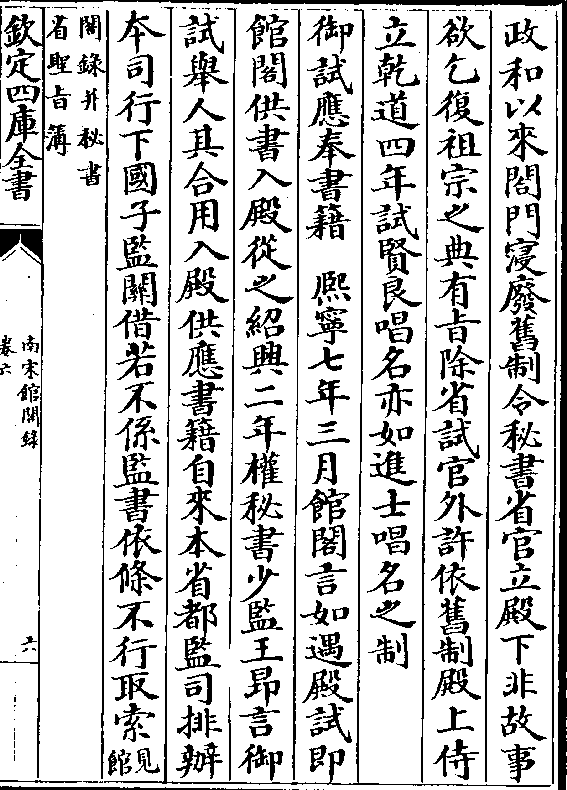 政和以來閤門寖廢舊制令秘書省官立殿下非故事
欲乞復祖宗之典有㫖除省試官外許依舊制殿上侍
立乾道四年試賢良唱名亦如進士唱名之制
御試應奉書籍 熙寧七年三月館閣言如遇殿試即
館閣供書入殿從之紹興二年權秘書少監王昂言御
試舉人其合用入殿供應書籍自來本省都監司排辦
本司行下國子監關借若不係監書依條不行取索見館
閣錄并秘書
省聖㫖簿
欽定四庫全書
南宋館閣錄
卷六
六